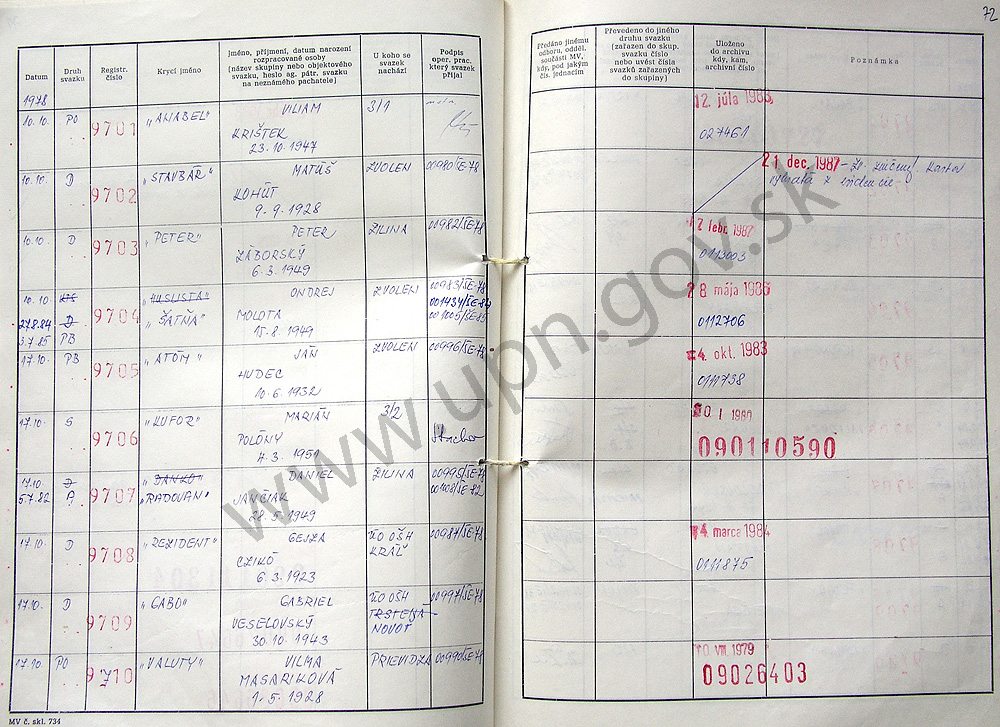 72
Datum
Druh svazku
Registr. číslo
Krycí jméno
Jméno, příjmení, datum narození
rozpracované osoby
(název skupiny nebo objektového
svazku, heslo ag. pátr. svazku
na neznámého pachatele)
U koho se
svazek
nachází
Podpis
oper. prac.
který svazek
přijal
Předáno jinému
odboru, odděl.
součásti MV,
kdy, pod jakým
čís. jednacím
Převedeno do jiného
druhu svazku
(zařazen do skup.
svazku číslo
nebo uvést čísla
svazků zařazených
do skupiny)
Uloženo
do archivu
kdy, kam,
archivní číslo
Poznámka
1978
10.10. PO 9701 „ANABEL" VILIAM 3/1
KRIŠTEK
23.10.1947
12. júla 1983
027461
10.10. D 9702 „STAVBÁR" MATÚŠ ZVOLEN 00980/ŠE-78
KOHÚT
9.9.1928
21 dec. 1987
10.10. D 9703 „PETER" PETER ŽILINA 00982/ŠE-78
ZÁBORSKÝ
6.3.1949
0113003
10.10 9704 „HUSLISTA" ONDREJ ZVOLEN 00983/ŠE-78
27.8.84 D „ŠATŇA" MOLOTA 001434/ŠE-84
3.7.85 PB 15.8.1949 001005/ŠE-85
28 mája 1986
0112706
17.10. PB 9705 „ATÓM" JÁN ZVOLEN 00996/ŠE-78
HUDEC
10.6.1932
4. okt. 1983
0111738
17.10. S 9706 „KUFOR" MARIÁN 3/2
POLÓNY
7.3.1951
090110590
17.10 D 9707 „DANKO" DANIEL ŽILINA 00995/ŠE-78
5.7.82 A „RADOVAN" JANČIAK 00108/ŠE-82
28.5.1949
17.10. D 9708 „REZIDENT" GEJZA KO OŠH 00987/ŠE-78
CZIKÓ KRÁĽ
6.3.1923
4. marca 1984
0111875
17.10. D 9709 „GABO" GABRIEL KO OŠH 00997/ŠE-78
VESELOVSKÝ TRSTENÁ
30.10.1943 NOVOT
17.10 PO 9710 „VALUTY" VILMA PRIEVIDZA 00990/ŠE-78
MASARIKOVÁ
1.5.1928
VIII 1979
09026403
MV č. skl. 734
www.upn.gov.sk